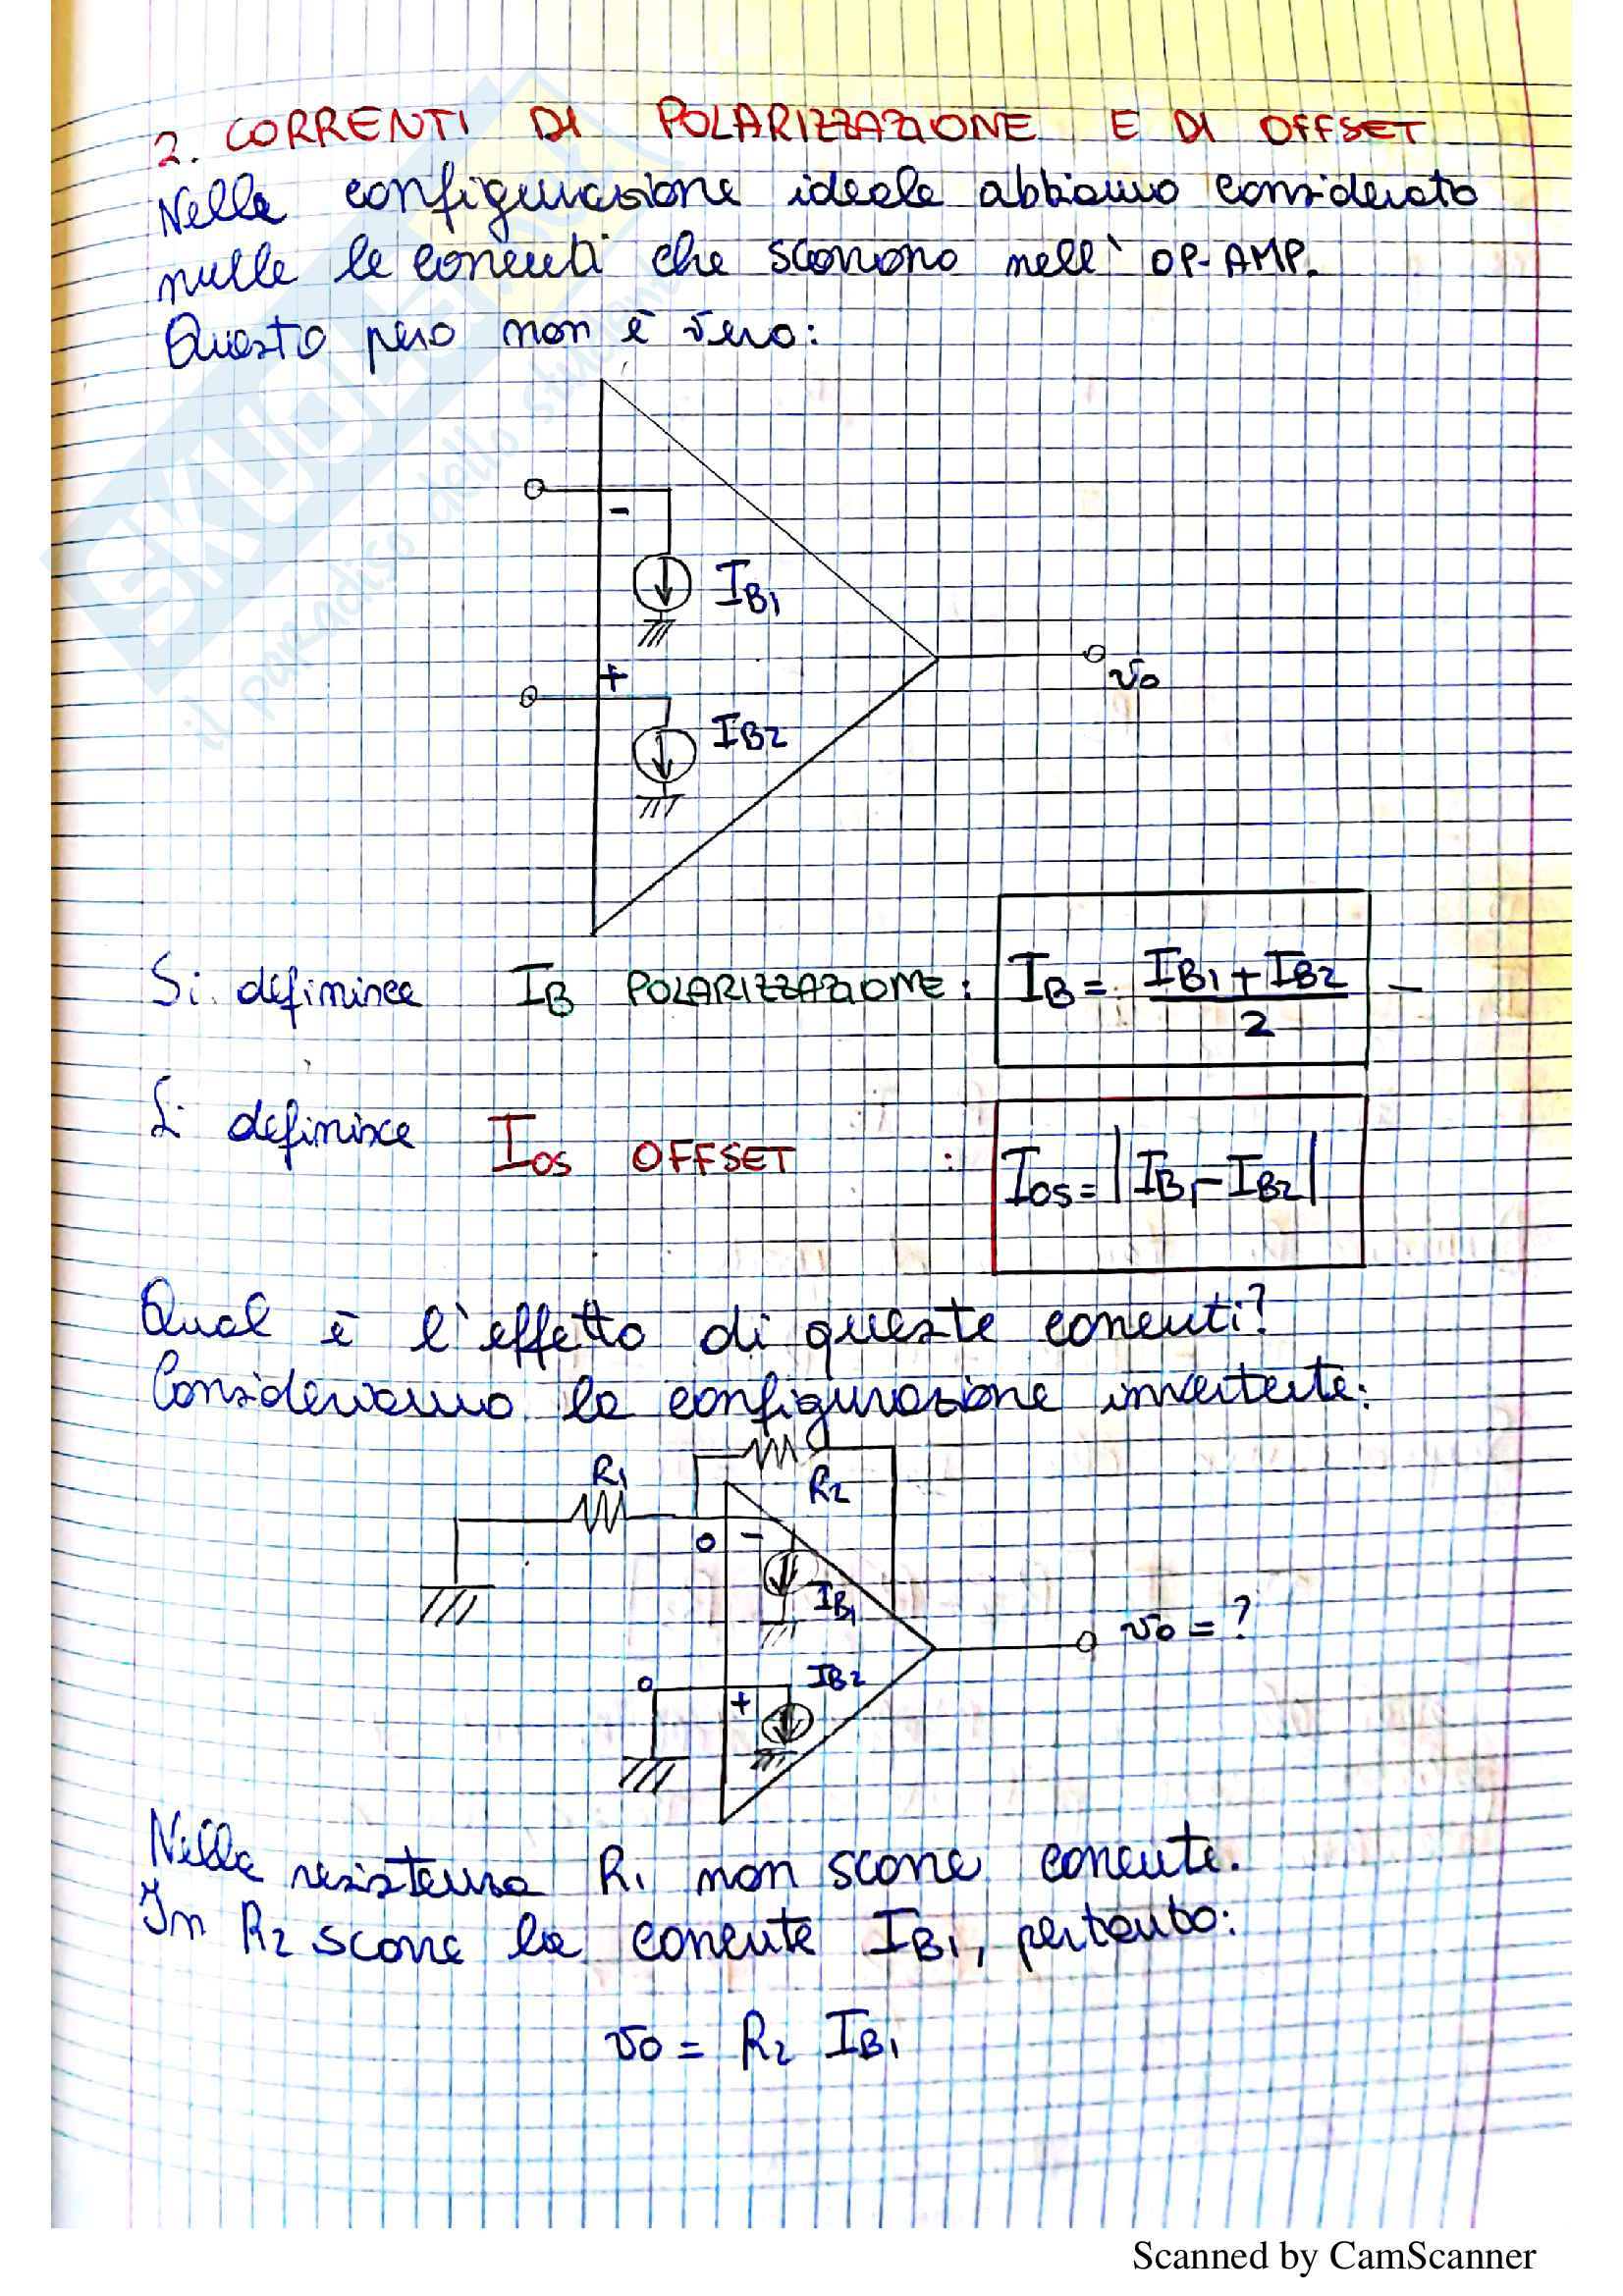 2. CORRENTI DI POLARIZZAZIONE E DI OFFSET
Nella configurazione ideale abbiamo considerato
nulle le correnti che scorrono nell' OP-AMP.
Questo però non è vero:
-
IB1
+
vo
IB2
Si definisce IB POLARIZZAZIONE: IB = IB1 + IB2 / 2
Si definisce IOS OFFSET : IOS = |IB1 - IB2|
Qual è l'effetto di queste correnti?
Consideriamo la configurazione invertente:
R1
R2
0 -
IB1
vo = ?
0
IB2
+
Nella resistenza R1 non scorre corrente.
In R2 scorre la corrente IB1, pertanto:
vo = R2 IB1
SKUOLA.NET
il paradiso dello studente
Scanned by CamScanner